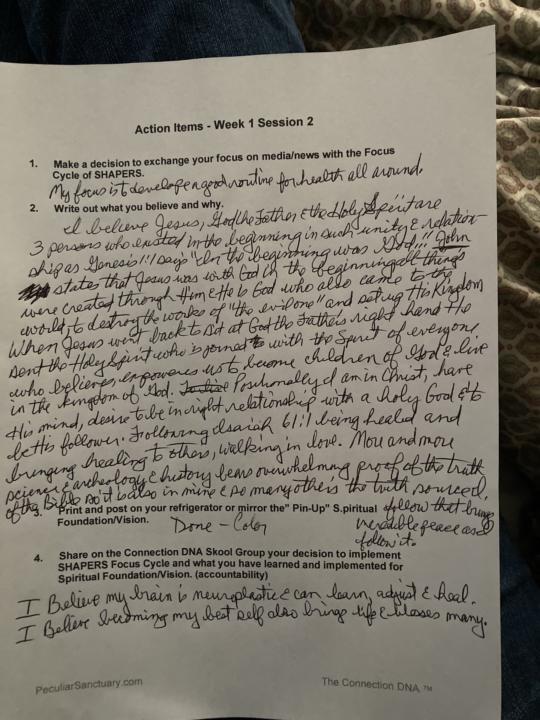 Action Items - Week 1 Session 2
1. Make a decision to exchange your focus on media/news with the Focus
Cycle of SHAPERS.
My focus is to develop a good routine for health all around.
2. Write out what you believe and why.
I believe Jesus, God the Father, & the Holy Spirit are
3 persons who existed in the beginning in such unity & relation-
ship as Genesis 1:1 says "In the beginning was God..." John
states that Jesus was with God in the beginning all things
were created through Him & He is God who also came to the
world to destroy the works of "the evil one" and set up His Kingdom
When Jesus went back to sit at God the Father's right hand He
sent the Holy Spirit who is joined with the Spirit of everyone
who believes, empowers us to become children of God & live
in the kingdom of God. Positionally I am in Christ, have
His mind, desire to be in right relationship with a holy God & to
be His follower. Following Isaiah 61:1 being healed and
bringing healing to others, walking in love. More and more
science & archeology & history bears overwhelming proof of the truth
of the Bible so it is also in mine & so many others the truth sourced,
3. Print and post on your refrigerator or mirror the" Pin-Up" S.piritual
follow that brings
Foundation/Vision.
Done - Color
peace as I
follow it.
4. Share on the Connection DNA Skool Group your decision to implement
SHAPERS Focus Cycle and what you have learned and implemented for
Spiritual Foundation/Vision. (accountability)
I Believe my brain is neuroplastic & can learn, adjust & heal.
I Believe becoming my best self also brings life & blesses many.
PeculiarSanctuary.com
The Connection DNA ™